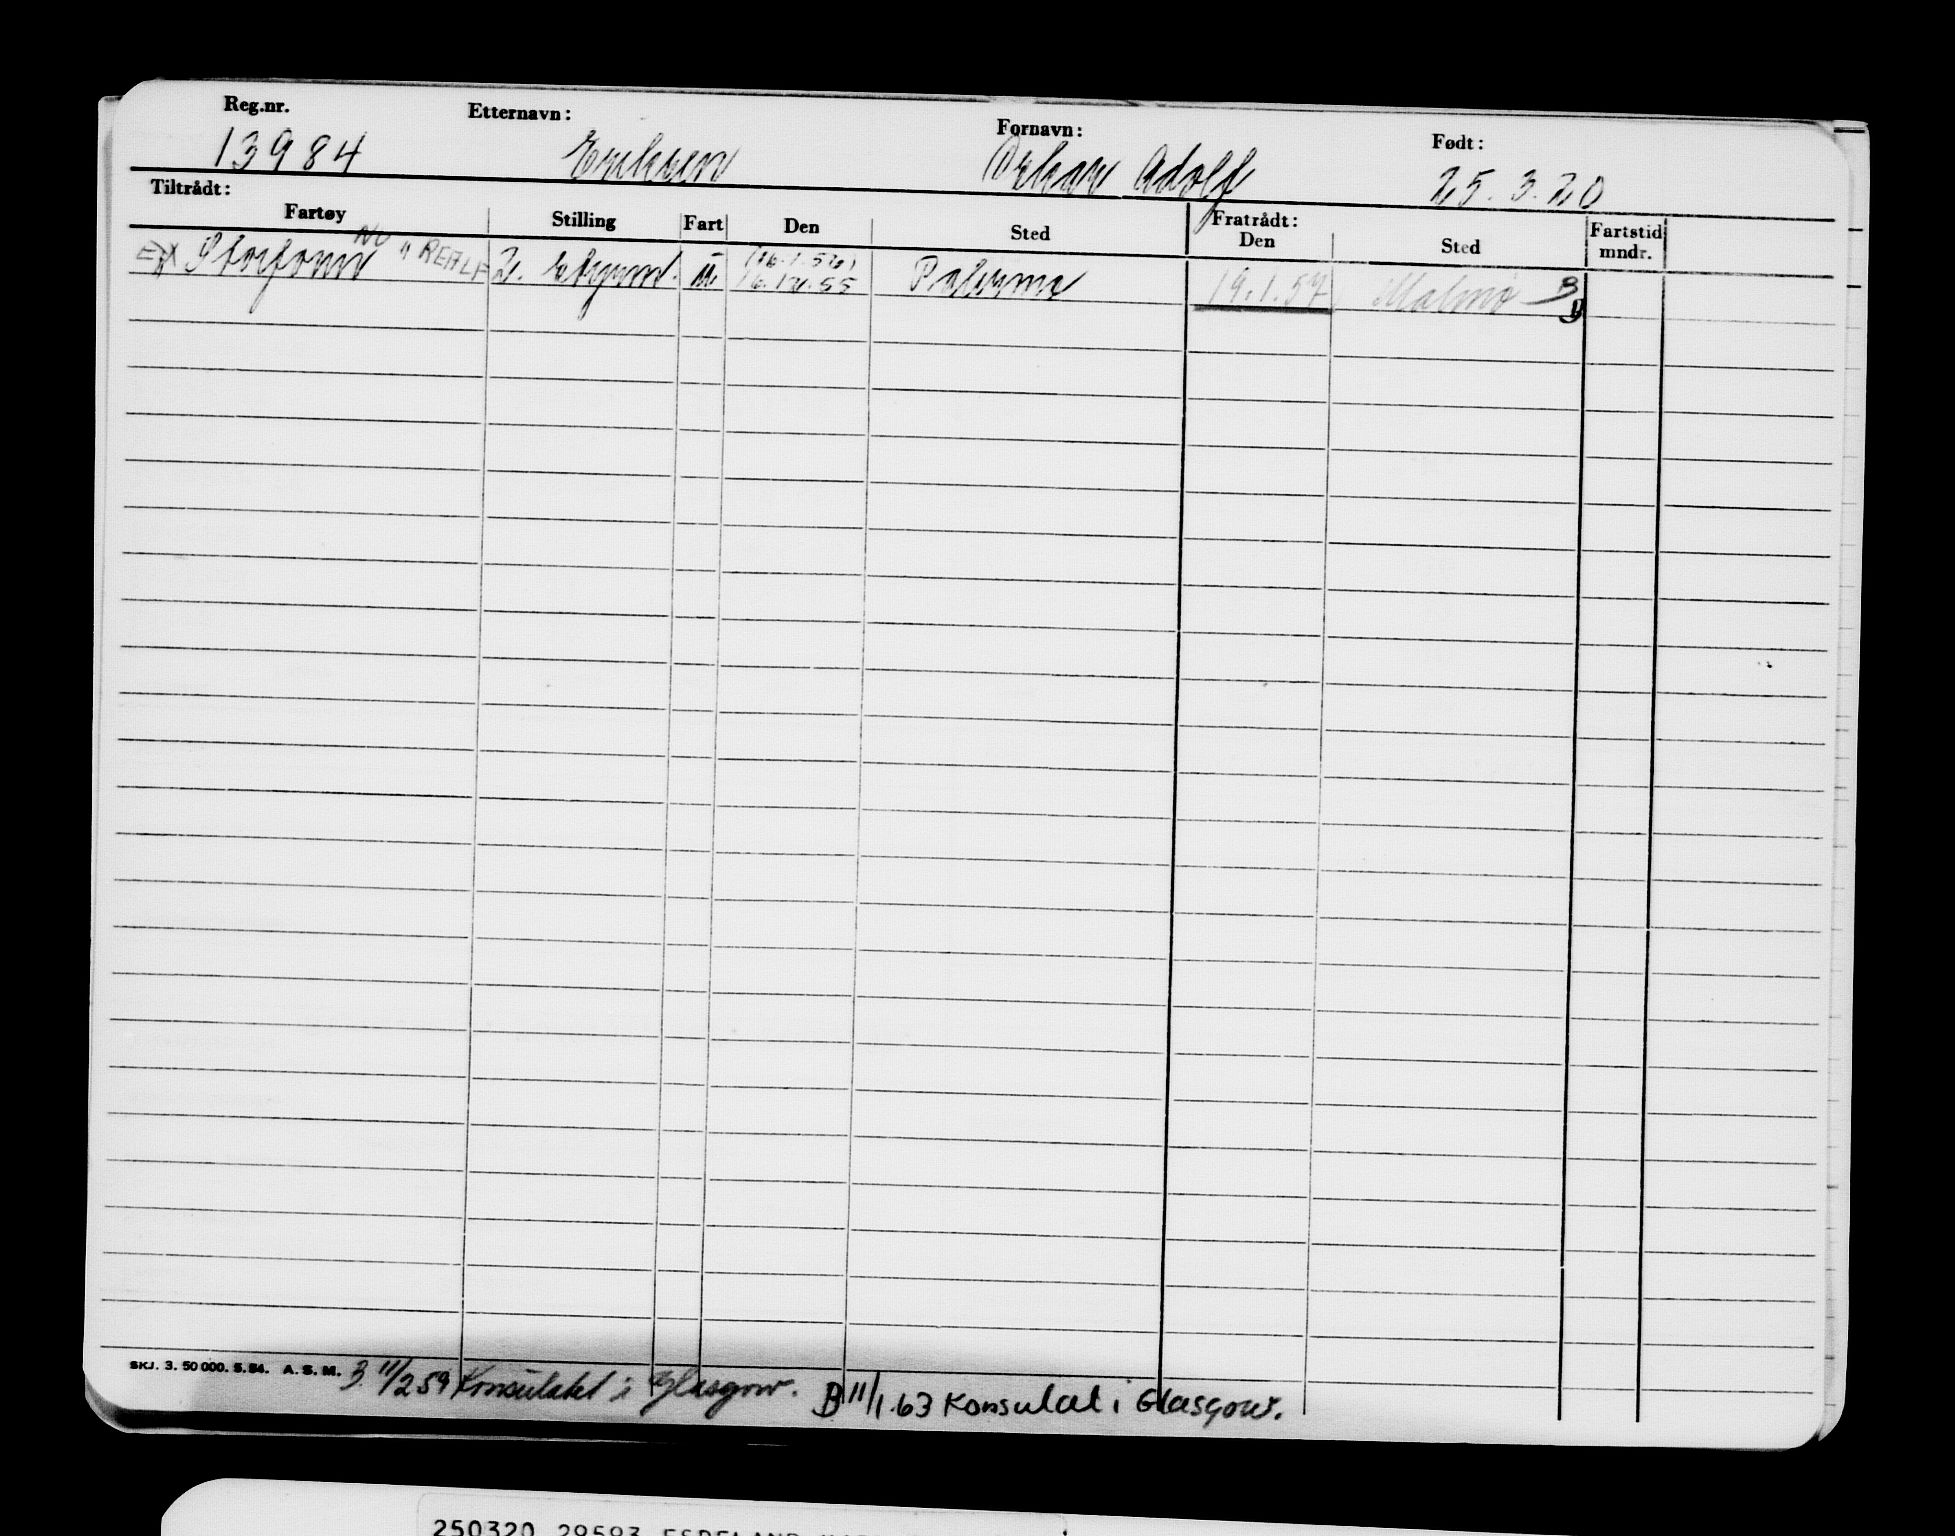 Reg.nr. Etternavn: Fornavn: Født:
13984 Eriksen Oskar Adolf 25.3.20
Tiltrådt: Fratrådt:
Fartøy Stilling Fart Den Sted Den Sted Fartstid mndr.
NU (16.1.56)
EX "REALF 2. 16.12.55 Palermo 19.1.57 Malmø B
SKJ. 3. 50 000. 5.54. A. S. M. 11/2 59 Konsulatet i Glasgow. B 11/1.63 Konsulat i Glasgow.
250320 29593 ESPELAND